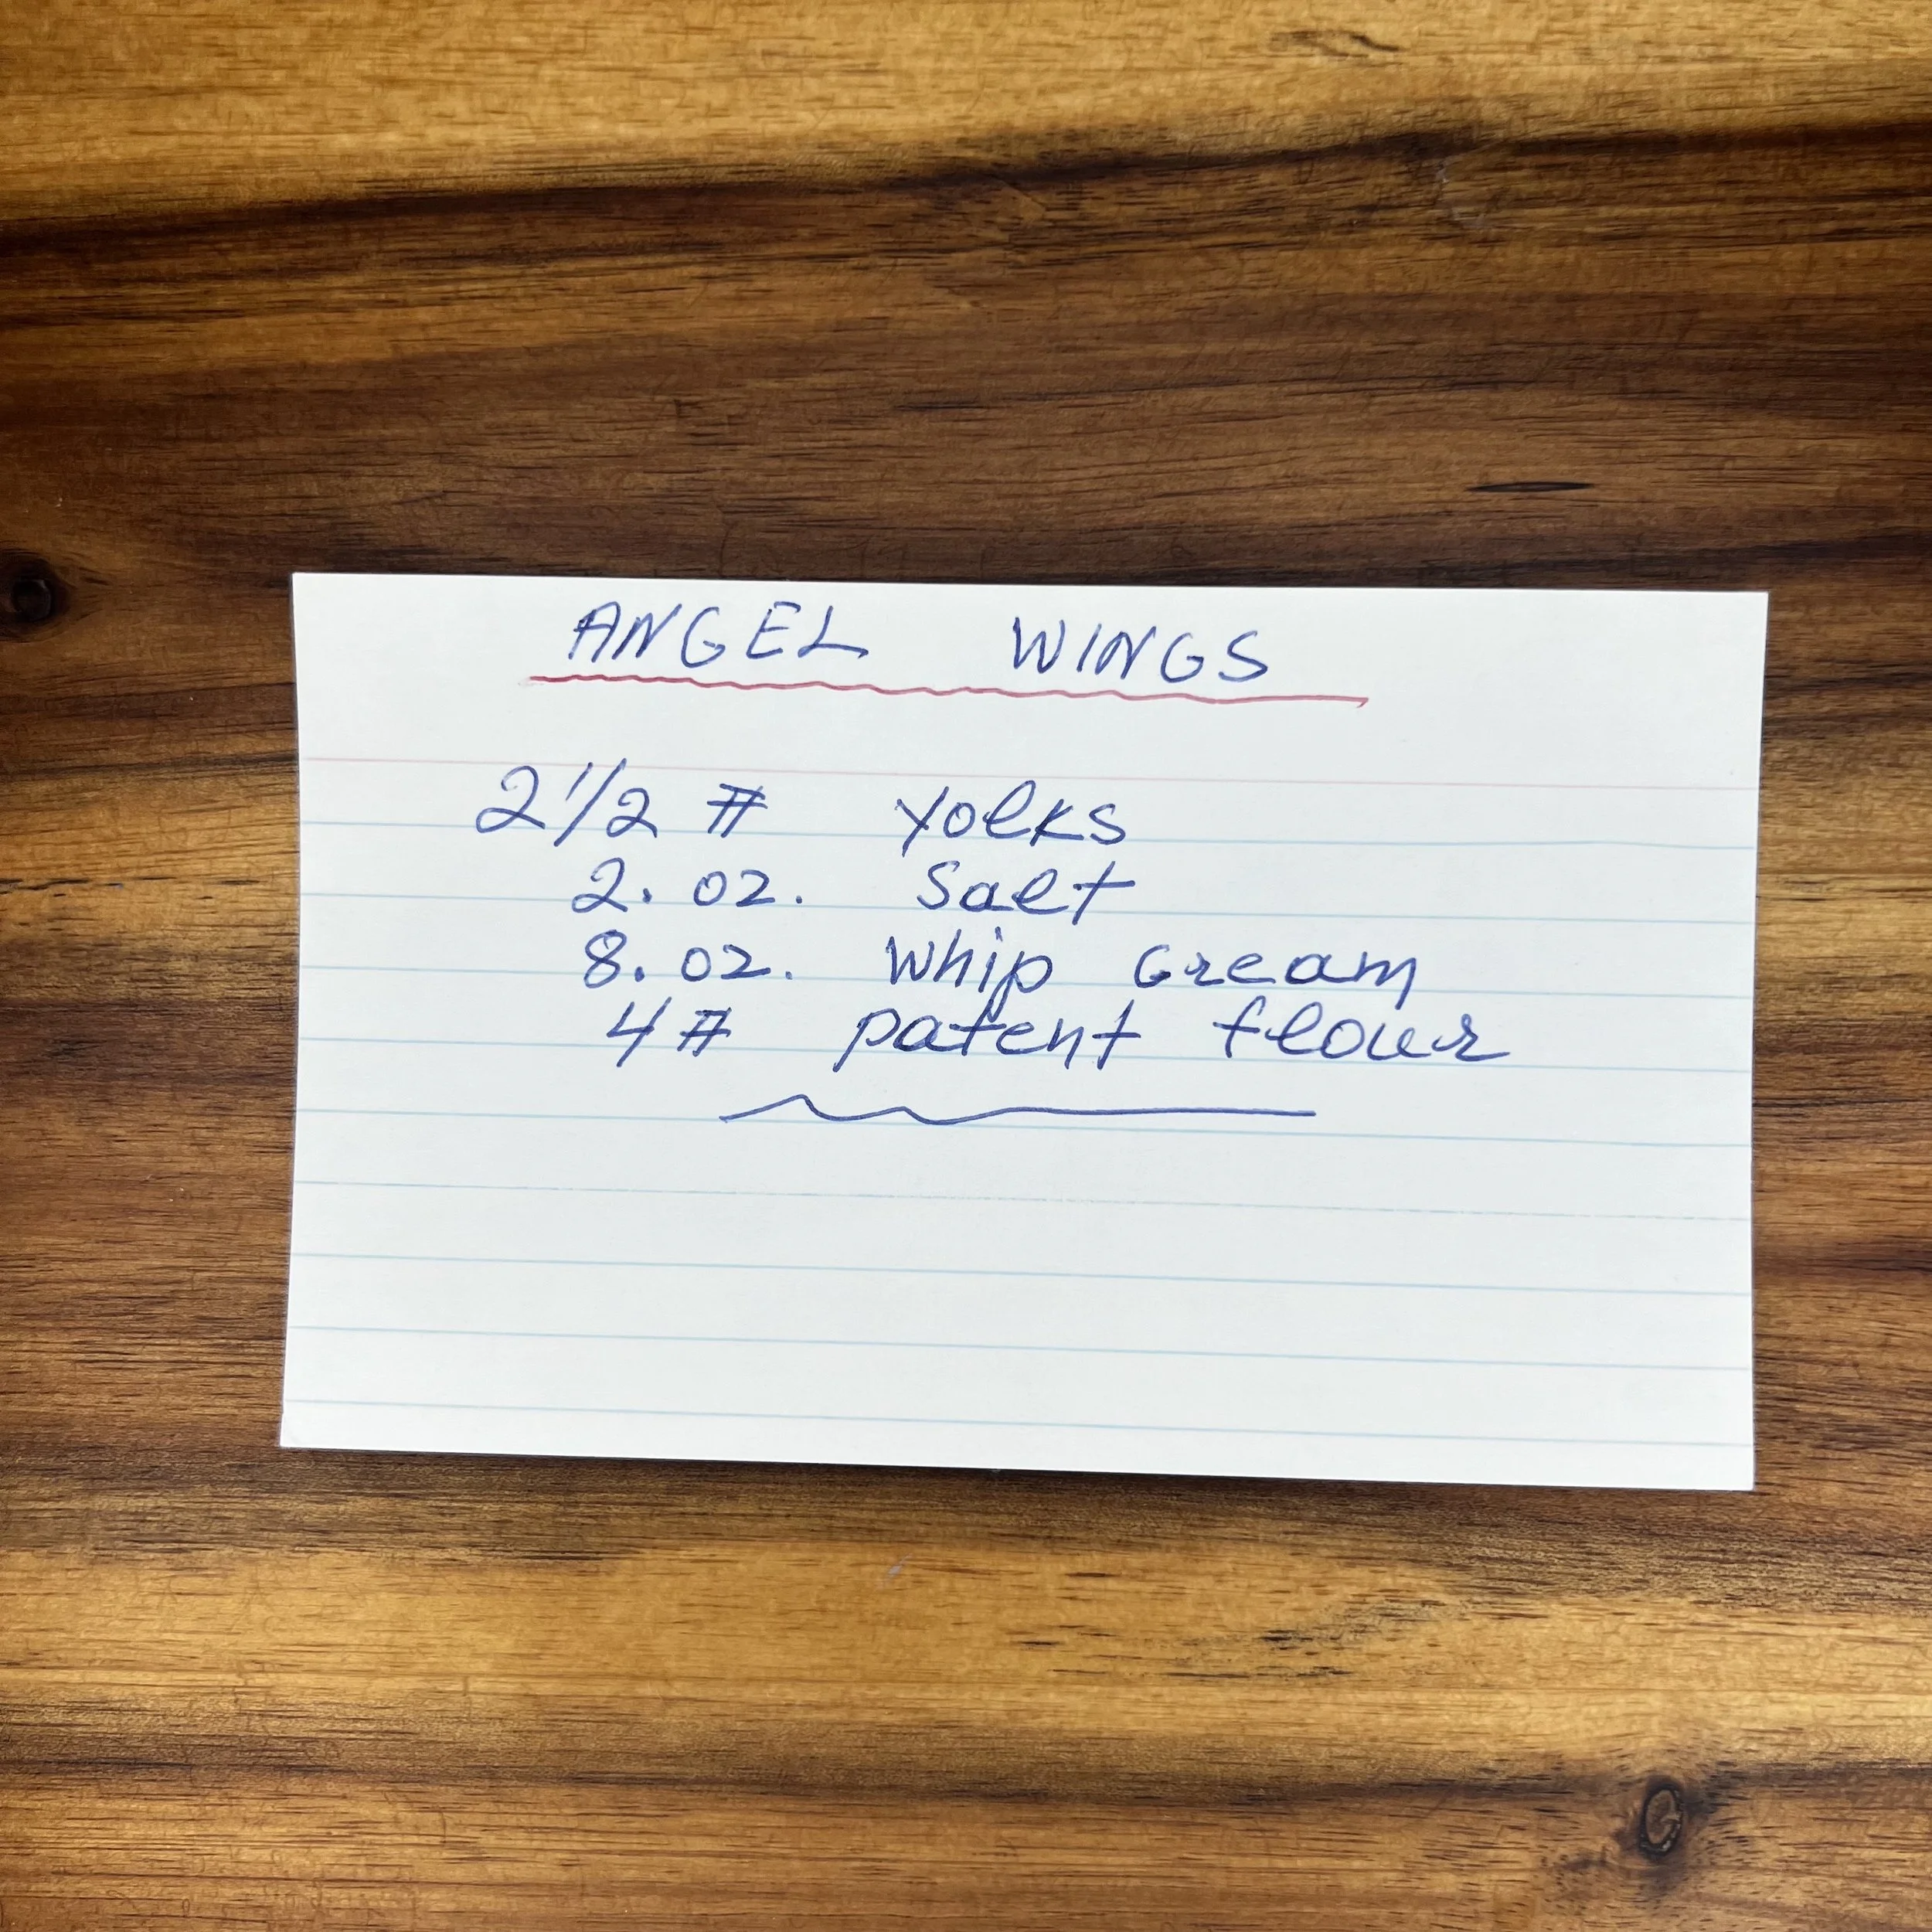 ANGEL WINGS
2 1/2 # yolks
2. oz. Salt
8. oz. Whip cream
4 # patent flour